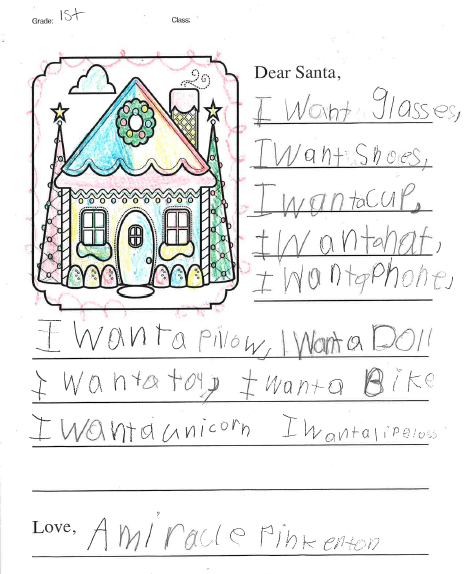 Grade: 1st Class:
Dear Santa,
I Want glasses,
I Want Shoes,
I want a cup,
I Want a hat,
I Want a Phone,
I Want a pillow, I Want a Doll
I want a toy, I want a Bike
I Want a unicorn I want a lipgloss
Love, Amiracle Pinkenton